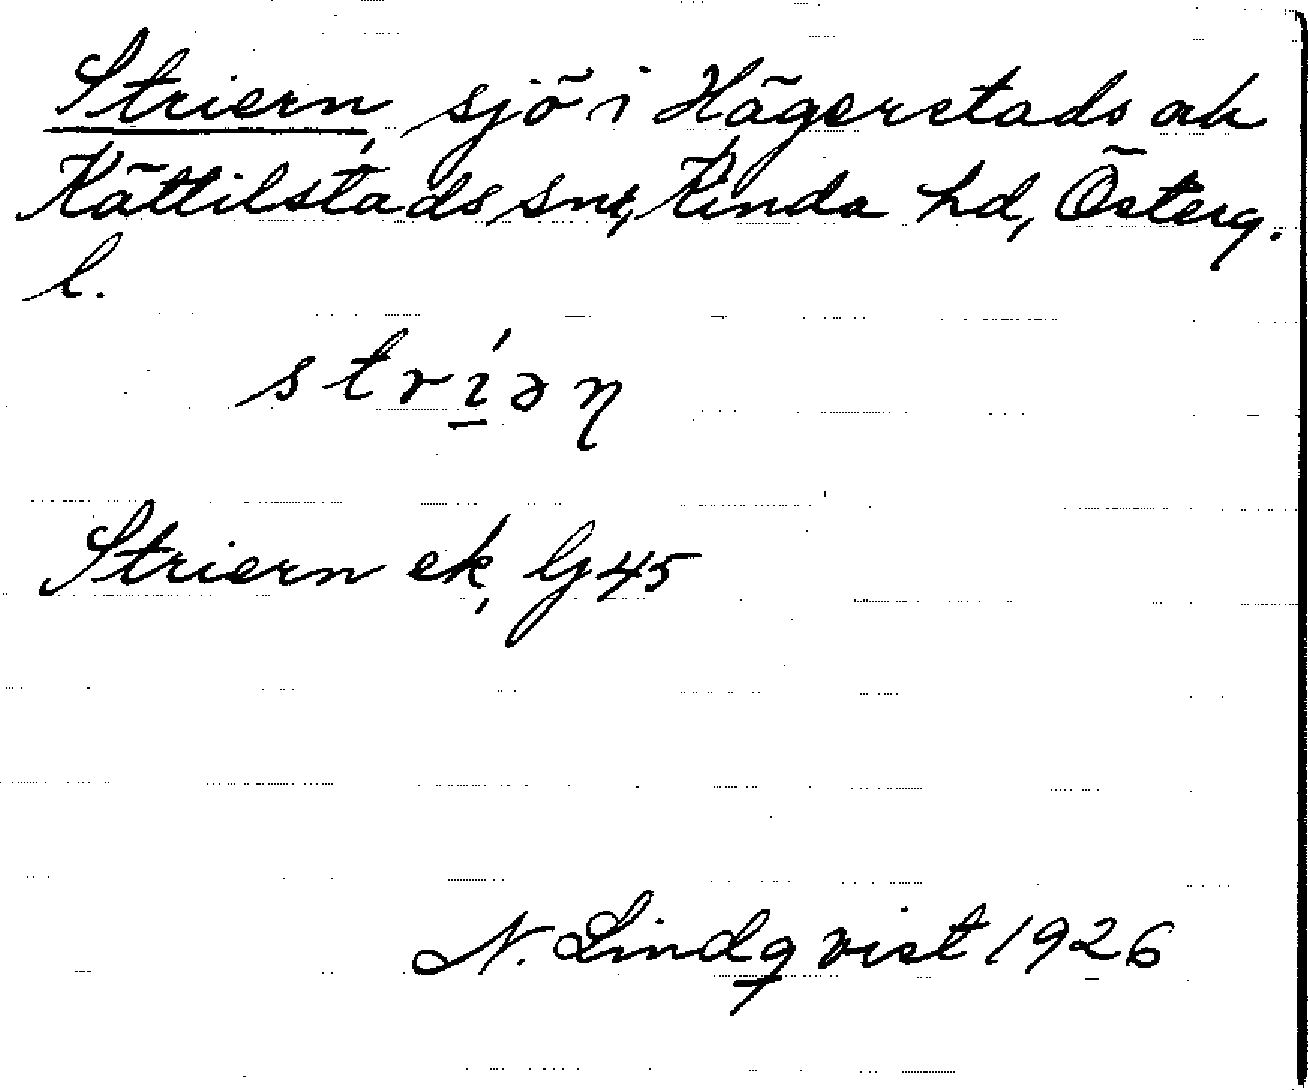 Striern, sjö i Hägerstads och
Kättilstads snr, Kinda hd, Österg.
l.
strí̲əŋ
Striern ek, G 45
N. Lindqvist 1926